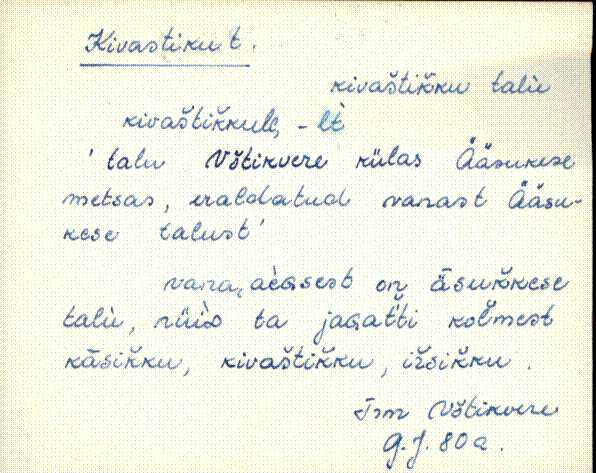 Kivastiku t.
kivaštikku talù
kivaštikkule, -lt
'talu Võtikvere külas Ääsukese
metsas, eraldatud vanast Ääsu-
kese talust'
vana, aégsest on äsukkese
talù, nüid ta jagatti kolmest
käsikku, kivaštikku, iršikku.
Trm Võtikvere
G. J. 80 a.